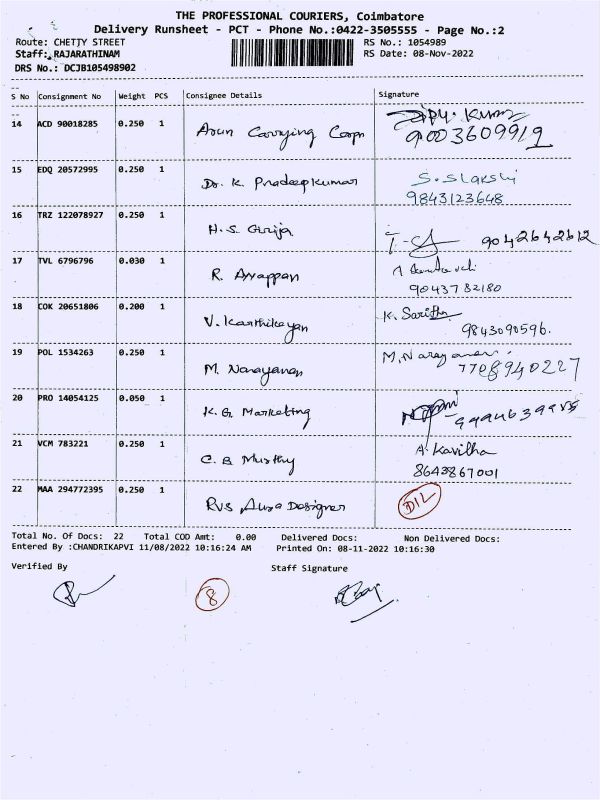 THE PROFESSIONAL COURIERS, Coimbatore
Delivery Runsheet - PCT - Phone No.:0422-3505555 - Page No.:2
Route: CHETTY STREET RS No.: 1054989
Staff: RAJARATHINAM RS Date: 08-Nov-2022
DRS No.: DCJB105498902
S No Consignment No Weight PCS Consignee Details Signature
14 ACD 90018285 0.250 1 Arun Carrying Corpn Kumar
9003609919
15 EDQ 20572995 0.250 1 Dr. K. Pradeepkumar
9843123648
16 TRZ 122078927 0.250 1 H.S. Girija 9042642612
17 TVL 6796796 0.030 1 R. Ayyappan
9043782180
18 COK 20651806 0.200 1 V. Karthikeyan K. Saritha
9843090596.
19 POL 1534263 0.250 1 M. Narayanan M. Narayanan
7708940227
20 PRO 14054125 0.050 1 K.G. Marketing
21 VCM 783221 0.250 1 C.B Murthy A. Kavitha
8643867001
22 MAA 294772395 0.250 1 RVS Designer D/L
Total No. Of Docs: 22 Total COD Amt: 0.00 Delivered Docs: Non Delivered Docs:
Entered By :CHANDRIKAPVI 11/08/2022 10:16:24 AM Printed On: 08-11-2022 10:16:30
Verified By Staff Signature
8